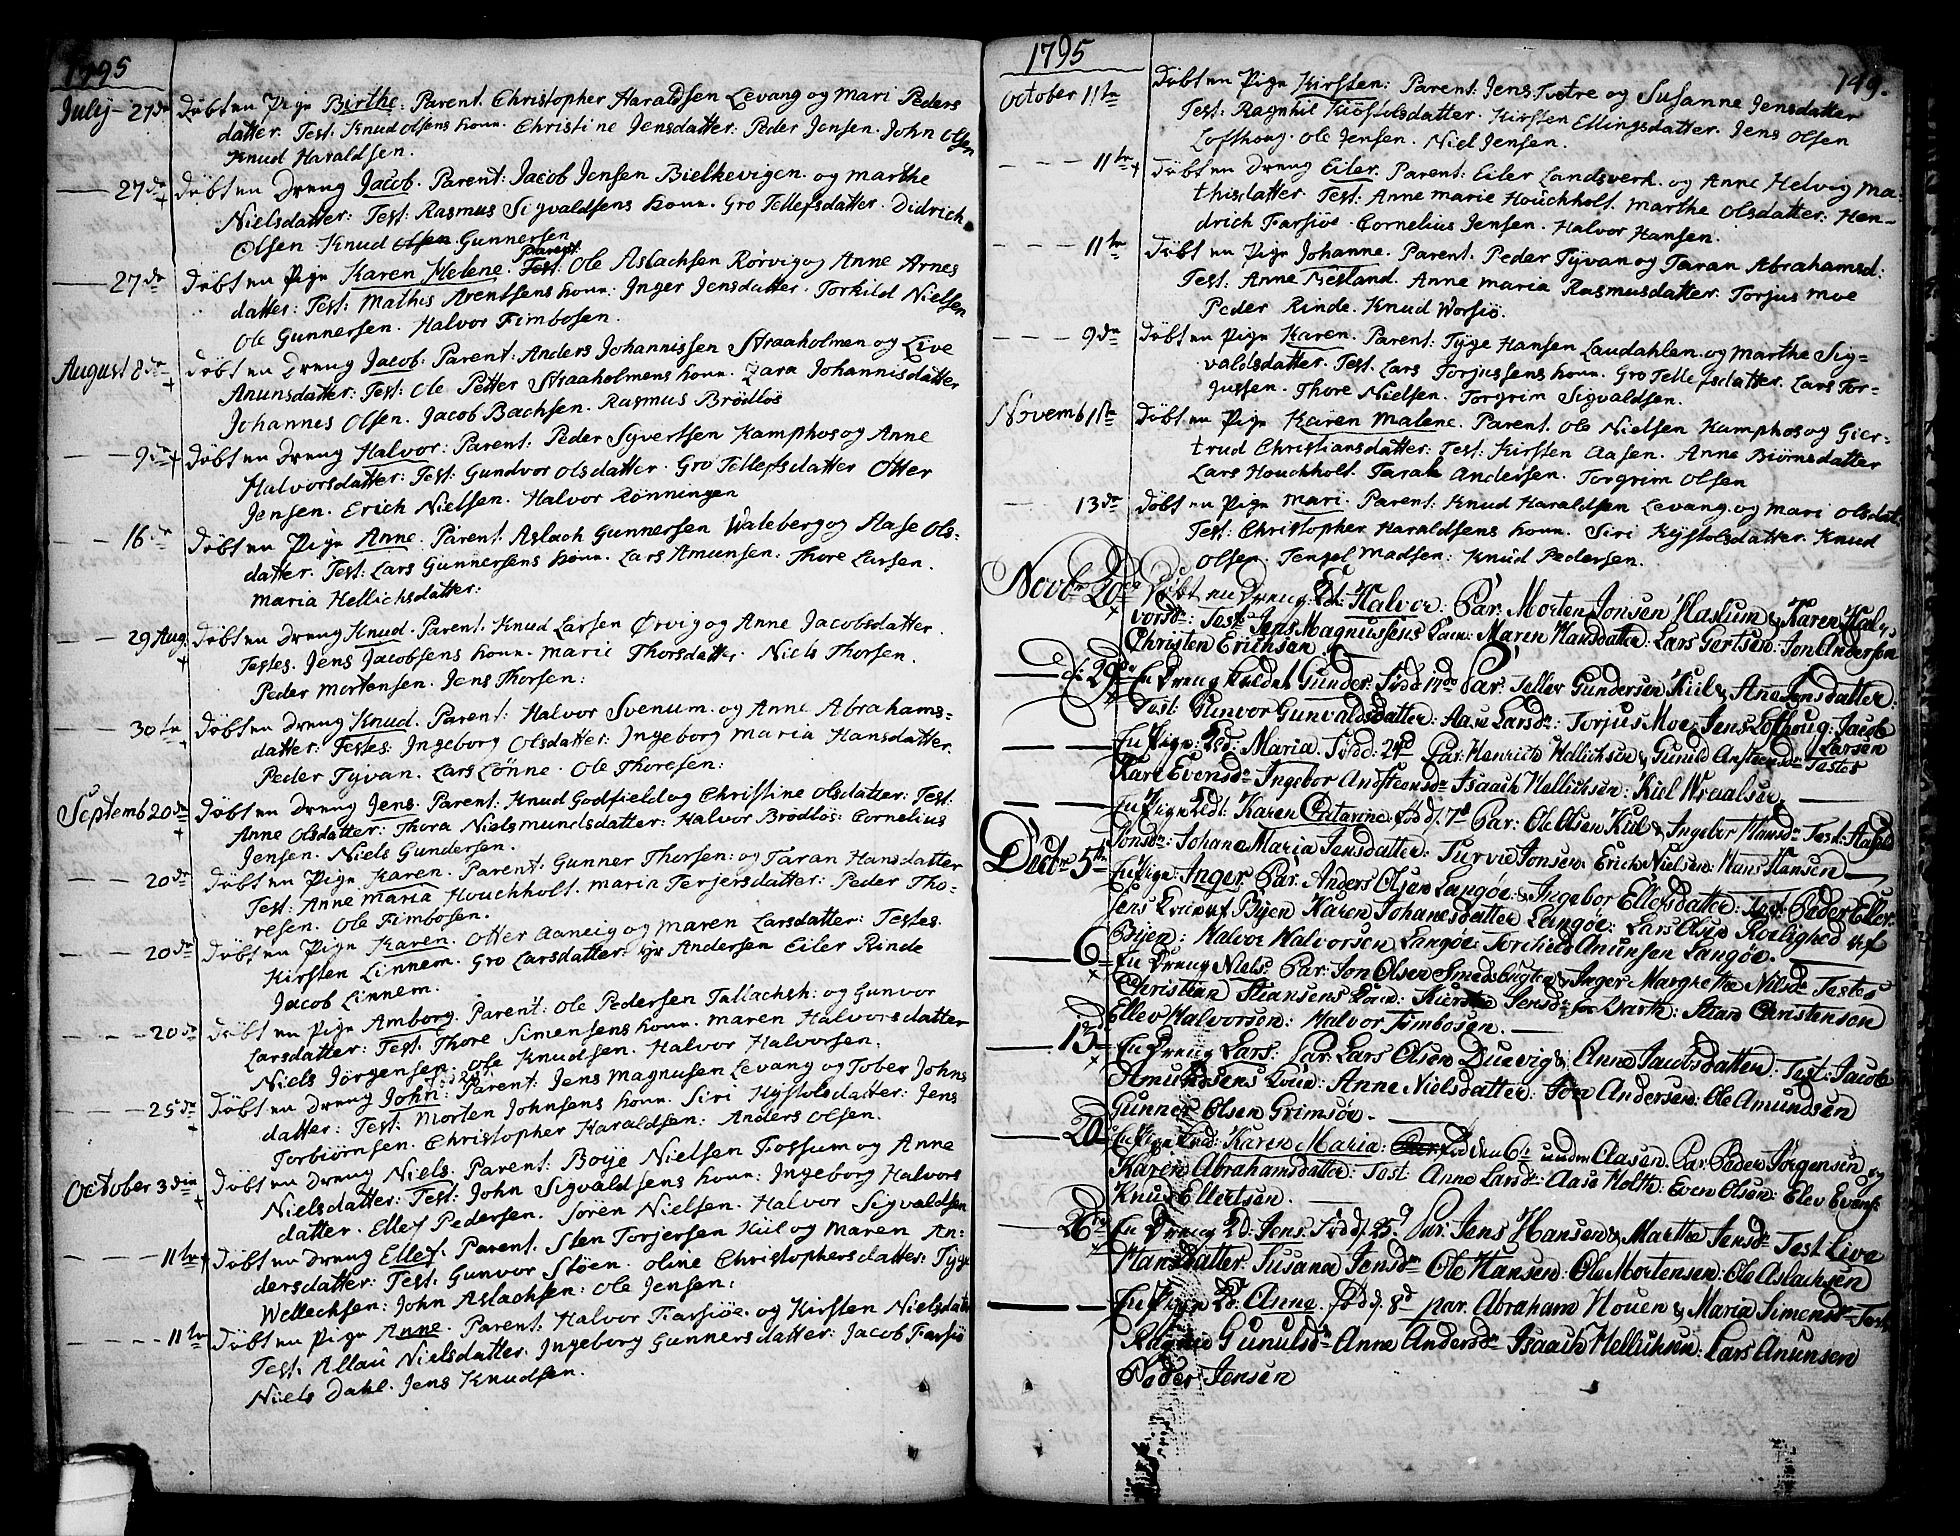 1795
Julij - 27de Döbt en Pige Birthe: Parent. Christopher Haraldsen Levang og Mari Peders
datter. Test: Knud Olsens kone. Christine Jensdatter. Peder Jensen. John Olsen
Knud Haraldsen.
27de Döbt en Dreng Jacob. Parent: Jacob Jensen Bielkevigen. og Marthe
Nielsdatter: Test: Rasmus Sigvaldsens kone. Gro Tellefsdatter. Didrich
Olsen. Knud Olsen Gunnersen
27de Döbt en Pige Karen Helene. Test. Parent. Ole Aslachsen Rörvig og Anne Arnes
datter: Test: Mathis Arentsens kone: Inger Jensdatter. Torkild Nielsen
Ole Gunnersen. Halvor Fimbosen.
August 8de Döbt en Dreng Jacob. Parent: Anders Johannissen Straaholmen og Live
Anunsdatter: Test: Ole Petter Straaholmens kone. Zara Johannisdatter
Johannes Olsen. Jacob Bachsen. Rasmus Brödlös
9de Döbt en Dreng Halvor: Parent: Peder Syvertsen Kamphos og Anne
Halvorsdatter: Test: Gundvor Olsdatter. Gro Tellefsdatter Otter
Jensen. Erich Nielsen. Halvor Rönningen
16de Döbt en Pige Anne. Parent. Aslach Gunnersen Waleberg og Aase Ols-
datter. Test: Lars Gunnersens kone. Lars Amunsen. Thore Larsen.
Maria Hellichsdatter:
29 Aug. Döbt en Dreng Knud. Parent. Knud Larsen Ørvig og Anne Jacobsdatter.
Testes. Jens Jacobsens kone. Marie Thorsdatter. Niels Thorsen.
Peder Mortensen. Jens Thorsen:
30te Döbt en Dreng Knud. Parent: Halvor Svenum. og Anne Abrahams-
datter: Testes: Ingeborg Olsdatter: Ingeborg Maria Hansdatter.
Peder Tyvan. Lars Lönne. Ole Thoresen:
Septemb 20de Döbt en Dreng Jens. Parent: Knud Godfield og Christine Olsdatter: Test:
Anne Olsdatter: Thora Nielsmundsdatter: Halvor Brödlös: Cornelius
Jensen. Niels Gundersen.
20de Döbt en Pige Karen. Parent. Gunner Thorsen: og Taran Hansdatter
Test: Anne Maria Houchholt. Maria Terjersdatter: Peder Tho-
resen. Ole Fimbosen.
20de Döbt en Pige Karen. Otter Aaneig og Maren Larsdatter: Testes
Kirsten Linnem. Gro Larsdatter: Andersen Eiler Rinde
Jacob Linnem.
20de Döbt en Pige Amborg. Parent: Ole Pedersen Tallachsh: og Gunvor
Larsdatter: Test: Thore Simensens kone. Maren Halvorsdatter
Niels Jörgensen. Ole Knudsen. Halvor Halvorsen:
25de Döbt en Dreng John: Parent: Jens Magnusen Levang og Tober Johns
datter: Test: Morten Johnsens kone. Siri Kystolsdatter: Jens
Torbiörnsen. Christopher Haraldsen: Anders Olsen.
October 3die Döbt en Dreng Niels. Parent: Boye Nielsen Fossum og Anne
Nielsdatter: Test: John Sigvaldsens kone: Ingeborg Halvors
datter. Ellef Pedersen. Sören Nielsen. Halvor Sigvaldsen
11te Döbt en Dreng Ellef. Parent. Sten Torjersen Kiil og Maren An-
dersdatter: Test: Gunvor Stöen. Oline Christophersdatter: Tyge
Wellechsen: John Aslachsen: Ole Jensen:
11te Döbt en Pige Anne. Parent: Halvor Farsiöe. og Kirsten Nielsdatr
Test. Allau Nielsdatter. Ingeborg Gunnersdatter: Jacob Farsiö
Niels Dahl. Jens Knudsen.
1795
149.
October 11te Döbt en Pige Kirsten: Parent: Jens Tvetre og Susanne Jensdatter
Test: Ragnhil Kiöstolsdatter. Kirsten Ellingsdatter. Jens Olsen
Lofthoug. Ole Jensen. Niel Jensen.
11te Döbt en Dreng Eiler. Parent: Eiler Landsverk. og Anne Helvig Ma-
thisdatter. Test: Anne Marie Houchholt. Marthe Olsdatter: Hen-
drich Farsiöe. Cornelius Jensen. Halvor Hansen.
11te Döbt en Pige Johanne. Parent. Peder Tyvan og Taran Abrahamsd:
Test: Anne Röstand. Anne Maria Rasmusdatter. Torjus Moe
Peder Rinde. Knud Worsiö.
9de Döbt en Pige Karen. Parent: Tyge Hansen Laudahlen. og Marthe Sig-
valdsdatter. Test. Lars Torjussens kone. Gro Tellefsdatter. Lars Tor-
jussen. Thore Nielsen. Torgrim Sigvaldsen.
Novemb 1ste Döbt en Pige Karen Malene. Parent. Ole Nielsen Kamphos og Gier-
trud Christiansdatter: Test: Kirsten Aasen. Anne Biörnsdatter
Lars Houchholt. Tarah Andersen. Torgrim Olsen
13de Döbt en Pige Mari. Parent: Knud Haraldsen Levang. og Mari Olsdat.
Test: Christopher Haraldsens kone. Siri Kystolsdatter. Knud
Olsen. Tengel Madsen: Knud Pedersen.
Novbr 20de Döbt en Dreng: Halvor: Par: Morten Jonsen Haslum & Karen Hal-
vorsdr: Test: Jens Magnussens kone: Maren Hansdatter: Lars Gertsen: Jon Andersen
Christen Erichsen
d. 29de En Dreng kaldet Gunder: Född 17de Par: Tellev Gundersen Kiil & Anne Jensdatter:
Test: Gunvor Gunvaldsdatter: Aase Larsdr: Torjus Moe: Jens Lofthoug: Jacob
Larsen
En Pige: Maria. Född: Par: Henrich Hellichsen & Gunild Ansteensdr Testes
Kari Evensdr Ingebor Ansteensdr Isaach Hellichsen: Kiel Wraalsen.
En Pige Karen Catarine född d. 7de Par: Ole Olsen Kiil & Ingebor Hansdr Test:
Jonsdr: Johane Maria Jensdatter: Jonsen: Erich Nielsen: Hans Hansen
Decbr 5te En Pige: Inger Par: Anders Olsen Langöe: & Ingebor Ellefsdatter: Test: Peder Ellef:
Jens Byen Karen Johanesdatter Langöe: Lars Olsen
Bÿen: Halvor Halvorsen Langöe: Torchild Anunsen Langöe.
6 En Dreng Niels: Par: Jon Olsen Smedsbugten & Inger Margrethe Nilsdr Testes
Christian Stiansens kone: Kirstie Jensdr Stian Christensen
Ellev Halvorsen: Halvor Fimbosen.
13de En Dreng Lars: Par: Lars Olsen Duevig & Anne Jacobsdatter: Test: Jacob
Amundsens kone: Anne Nielsdatter: Jon Andersen: Ole Amundsen
Gunner Olsen Grimsöe.
20 En Pige: Karen Maria: den 6te under Aasen. Par: Peder Jörgensen og
Karen Abrahamsdatter: Test: Anne Larsdr: Aase Holth: Even Olsen: Elev Evens:
Knud Ellertsen.
26de En Dreng Jens. Född Par: Jens Hansen & Marthe Jensdr Test Live
Hansdatter: Susana Jensdr Ole Hansen: Ole Mortensen: Ole Aslachsen
En Pige Anne. född 8d par. Abraham Houen & Maria Simensdr Test
Ragnild Gunulsdr Anne Andersdr Isaach Hellichsen: Lars Anunsen
Peder Jensen